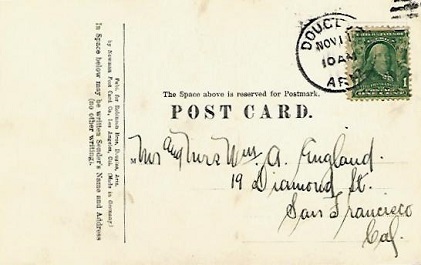 DOUGLAS
NOV 11
10 AM
ARIZ
1
The Space above is reserved for Postmark.
POST CARD.
M Mr and Mrs Wm. A. England.
19 Diamond St.
San Francisco
Cal.
In Space below may be written Sender's Name and Address
(no other writing).
Pub. for Robinson Bros, Douglas, Ariz.
by Newman Post Card Co., Los Angeles, Cal. (Made in Germany)